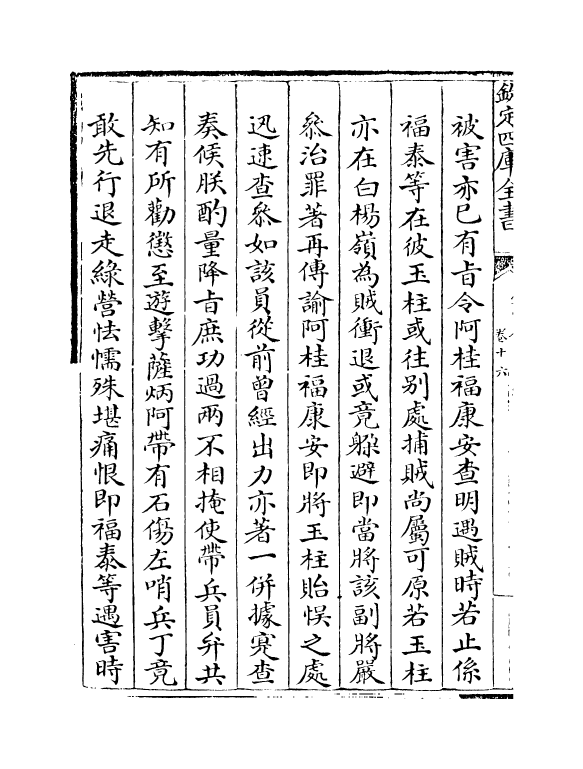 欽定四庫全書
卷十六
被害亦已有旨令阿桂福康安查明遇賊時若止係
福泰等在彼玉柱或往别處捕賊尚屬可原若玉柱
亦在白楊嶺為賊衝退或竟躱避即當將該副將嚴
叅治罪著再傳諭阿桂福康安即將玉柱貽悞之處
迅速查叅如該員從前曾經出力亦著一併據寔查
奏候朕酌量降旨庶功過兩不相掩使帶兵員弁共
知有所勸懲至遊擊薩炳阿帶有石傷左哨兵丁竟
敢先行退走綠營怯懦殊堪痛恨即福泰等遇害時